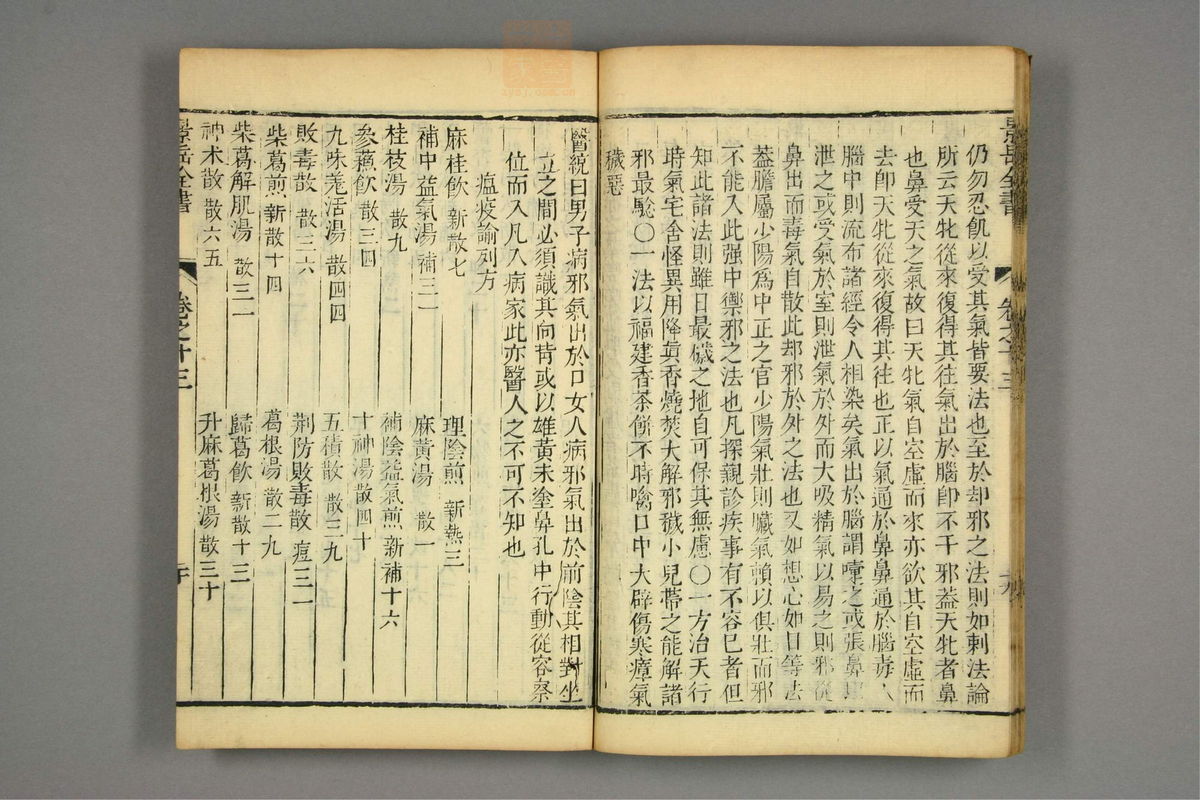 景岳全書 卷之十三
仍勿忍飢以受其氣皆要法也至於却邪之法則如刺法論
所云天牝從來復得其往氣出於腦卽不干邪蓋天牝者鼻
也鼻受天之氣故曰天牝氣自空虛而來亦欲其自空虛而
去卽天牝從來復得其往也正以氣通於鼻鼻通於腦毒入
腦中則流布諸經令人相染矣氣出於腦謂嚏之或張鼻
泄之或受氣於室則泄氣於外而大吸精氣以易之則邪從
鼻出而毒氣自散此却邪於外之法也又如想心如日等法
蓋膽屬少陽爲中正之官少陽氣壯則臟氣賴以俱壯而邪
不能入此强中禦邪之法也凡探親診疾事有不容已者但
知此諸法則雖日最穢之地自可保其無慮○一方治天行
時氣宅舍怪異用降眞香燒焚大解邪穢小兒帶之能解諸
邪最驗○一法以福建香茶餅不時噙口中大辟傷寒瘴氣
穢惡
醫統曰男子病邪氣出於口女人病邪氣出於前陰其相對坐
立之間必須識其向背或以雄黃末塗鼻孔中行動從容察
位而入凡入病家此亦醫人之不可不知也
瘟疫論列方
麻桂飲 新散七 理陰煎 新熱三
補中益氣湯 補三一 麻黃湯 散一
桂枝湯 散九 補陰益氣煎 新補十六
參蘇飲 散三四 十神湯 散四十
九味羌活湯 散四四 五積散 散三九
敗毒散 散三六 荆防敗毒散 痘三一
柴葛煎 新散十四 葛根湯 散二九
柴葛解肌湯 散三一 歸葛飲 新散十三
神术散 散六五 升麻葛根湯 散三十
景岳全書 卷之十三